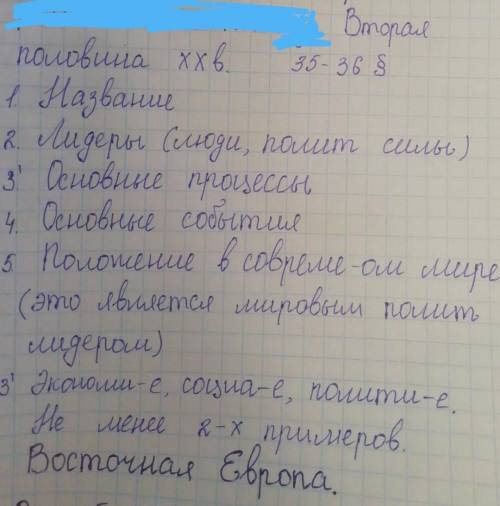 Вторая
половина ХХв. 35-36 §
1. Название
2. Лидеры (люди, полит силы)
3' Основные процессы
4. Основные события
5 Положение в совреме-ом мире
(это является мировым полит
лидером)
3' Экономи-е, социа-е, полити-е.
Не менее 2-х примеров.
Восточная Европа.